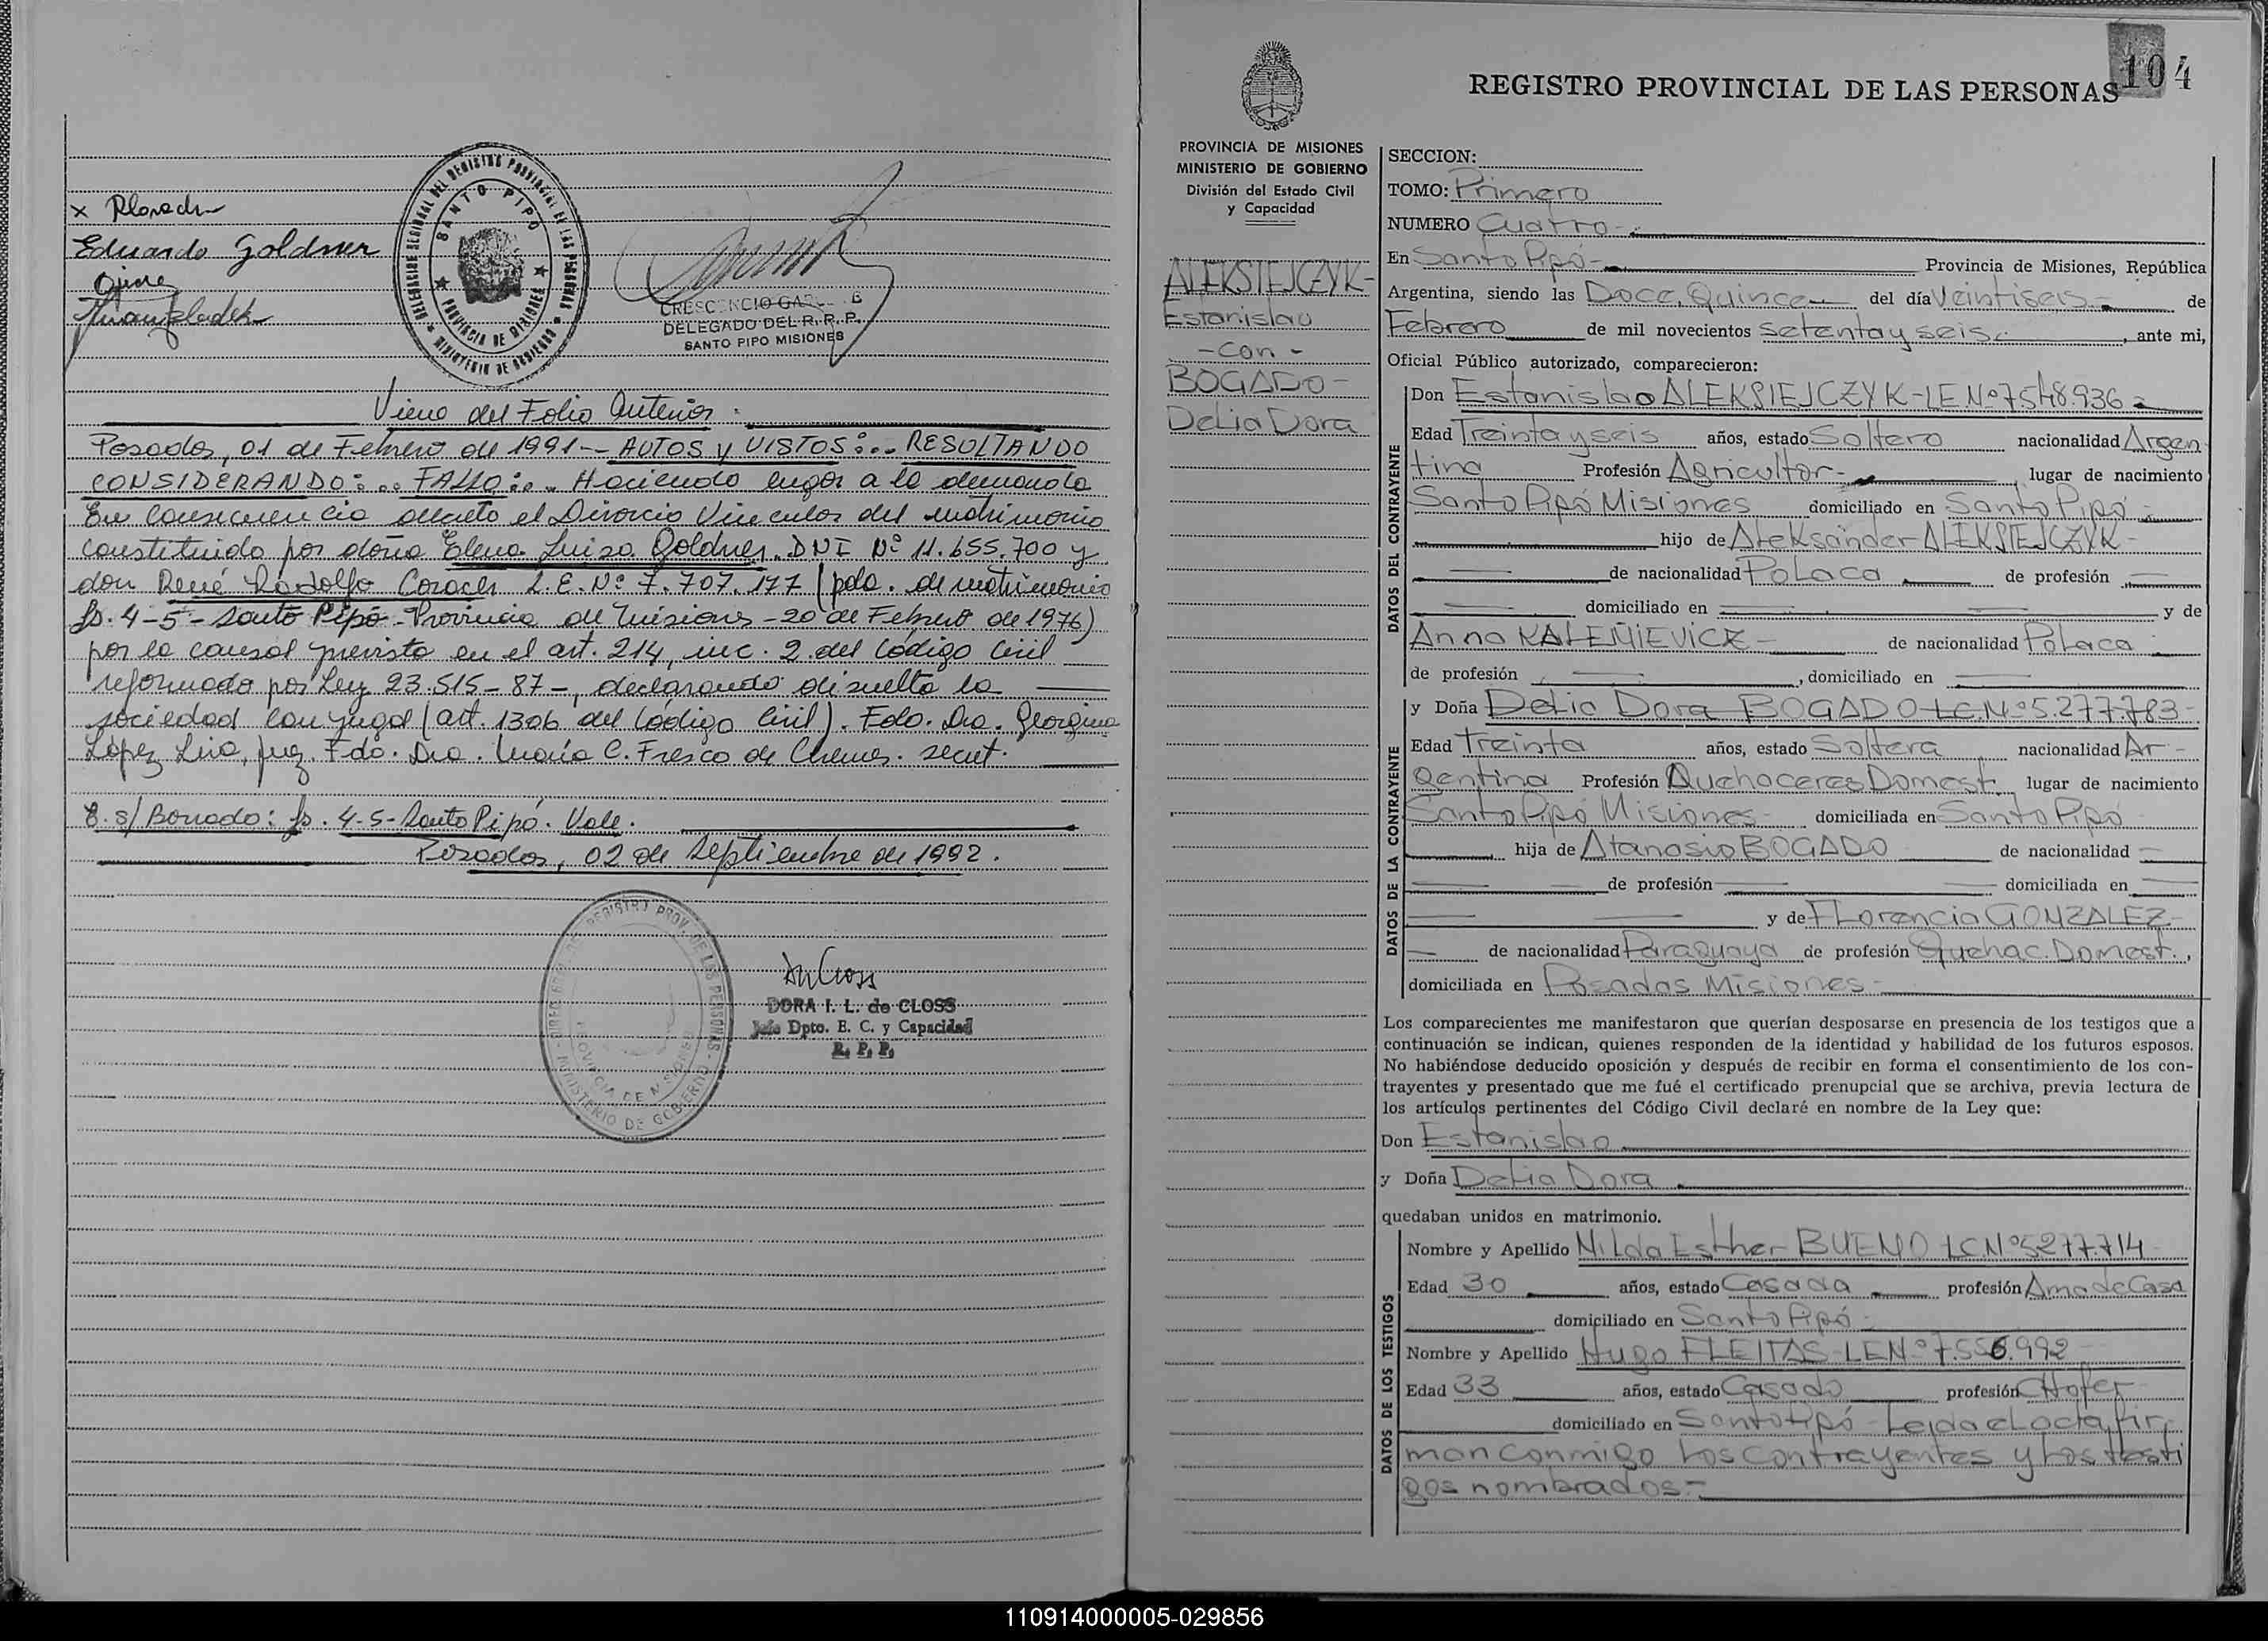 Eduardo Goldner
DELEGACION REGIONAL DEL REGISTRO PROVINCIAL DE LAS PERSONAS
SANTO PIPO
PROVINCIA DE MISIONES
MINISTERIO DE GOBIERNO
DELEGADO DEL R. R. P.
SANTO PIPO MISIONES
Viene del Folio Anterior.
Posadas, 01 de Febrero de 1991 -- AUTOS y VISTOS:... RESULTANDO
CONSIDERANDO:... FALLO:... Haciendo lugar a la demanda
En consecuencia decreto el Divorcio Vincular del matrimonio
constituido por doña Elena Luisa Goldner DNI Nº 11.655.700 y
don René Rodolfo L.E. Nº 7.707.177 (pda. de matrimonio
fs. 4-5- Santo Pipó - Provincia de Misiones - 20 de Febrero de 1976)
por la causal prevista en el art. 214, inc. 2 del Código Civil
reformado por Ley 23.515-87-, declarando disuelta la
sociedad conyugal (art. 1306 del Código Civil). Fdo. Dra. Georgina
López Liva, juez. Fdo. Dra. María C. Fresco de secret.
E. s/ Borrado: fs. 4-5- Santo Pipó. Vale.
Posadas, 02 de Septiembre de 1992.
DORA I. L. de CLOSS
Jefe Dpto. E. C. y Capacidad
R. P. P.
104
REGISTRO PROVINCIAL DE LAS PERSONAS
PROVINCIA DE MISIONES
MINISTERIO DE GOBIERNO
División del Estado Civil
y Capacidad
ALEKSIEJCZYK-
Estanislao
-con-
BOGADO-
Delia Dora
SECCION:
TOMO: Primero
NUMERO Cuatro-
En Santo Pipó- Provincia de Misiones, República
Argentina, siendo las Doce, Quince del día Veintiseis de
Febrero de mil novecientos setenta y seis, ante mi,
Oficial Público autorizado, comparecieron:
DATOS DEL CONTRAYENTE
Don Estanislao ALEKSIEJCZYK-LE Nº 7548936
Edad Treinta y seis años, estado Soltero nacionalidad Argen
tina Profesión Agricultor- , lugar de nacimiento
Santo Pipó Misiones domiciliado en Santo Pipó
hijo de Aleksander ALEKSIEJCZYK-
de nacionalidad Polaca de profesión
domiciliado en y de
Anna de nacionalidad Polaca
de profesión , domiciliado en
DATOS DE LA CONTRAYENTE
y Doña Delia Dora BOGADO-LC.Nº 5.277.783-
Edad Treinta años, estado Soltera nacionalidad Ar-
gentina Profesión Quehaceres Domest. lugar de nacimiento
Santo Pipó Misiones domiciliada en Santo Pipó
hija de Atanasio BOGADO de nacionalidad
de profesión domiciliada en
y de Florencia GONZALEZ-
de nacionalidad Paraguaya de profesión Quehac. Domest.,
domiciliada en Posadas Misiones-
Los comparecientes me manifestaron que querían desposarse en presencia de los testigos que a
continuación se indican, quienes responden de la identidad y habilidad de los futuros esposos.
No habiéndose deducido oposición y después de recibir en forma el consentimiento de los con-
trayentes y presentado que me fué el certificado prenupcial que se archiva, previa lectura de
los artículos pertinentes del Código Civil declaré en nombre de la Ley que:
Don Estanislao
y Doña Delia Dora
quedaban unidos en matrimonio.
DATOS DE LOS TESTIGOS
Nombre y Apellido Nilda Esther BUENO LC Nº 5277714
Edad 30 años, estado Casada profesión Ama de Casa
domiciliado en Santo Pipó-
Nombre y Apellido Hugo FLEITAS-LE Nº 7.556.992
Edad 33 años, estado Casado profesión Chofer
domiciliado en Santo Pipó Leida el acta, fir
man conmigo los contrayentes y los testi
gos nombrados-
110914000005-029856